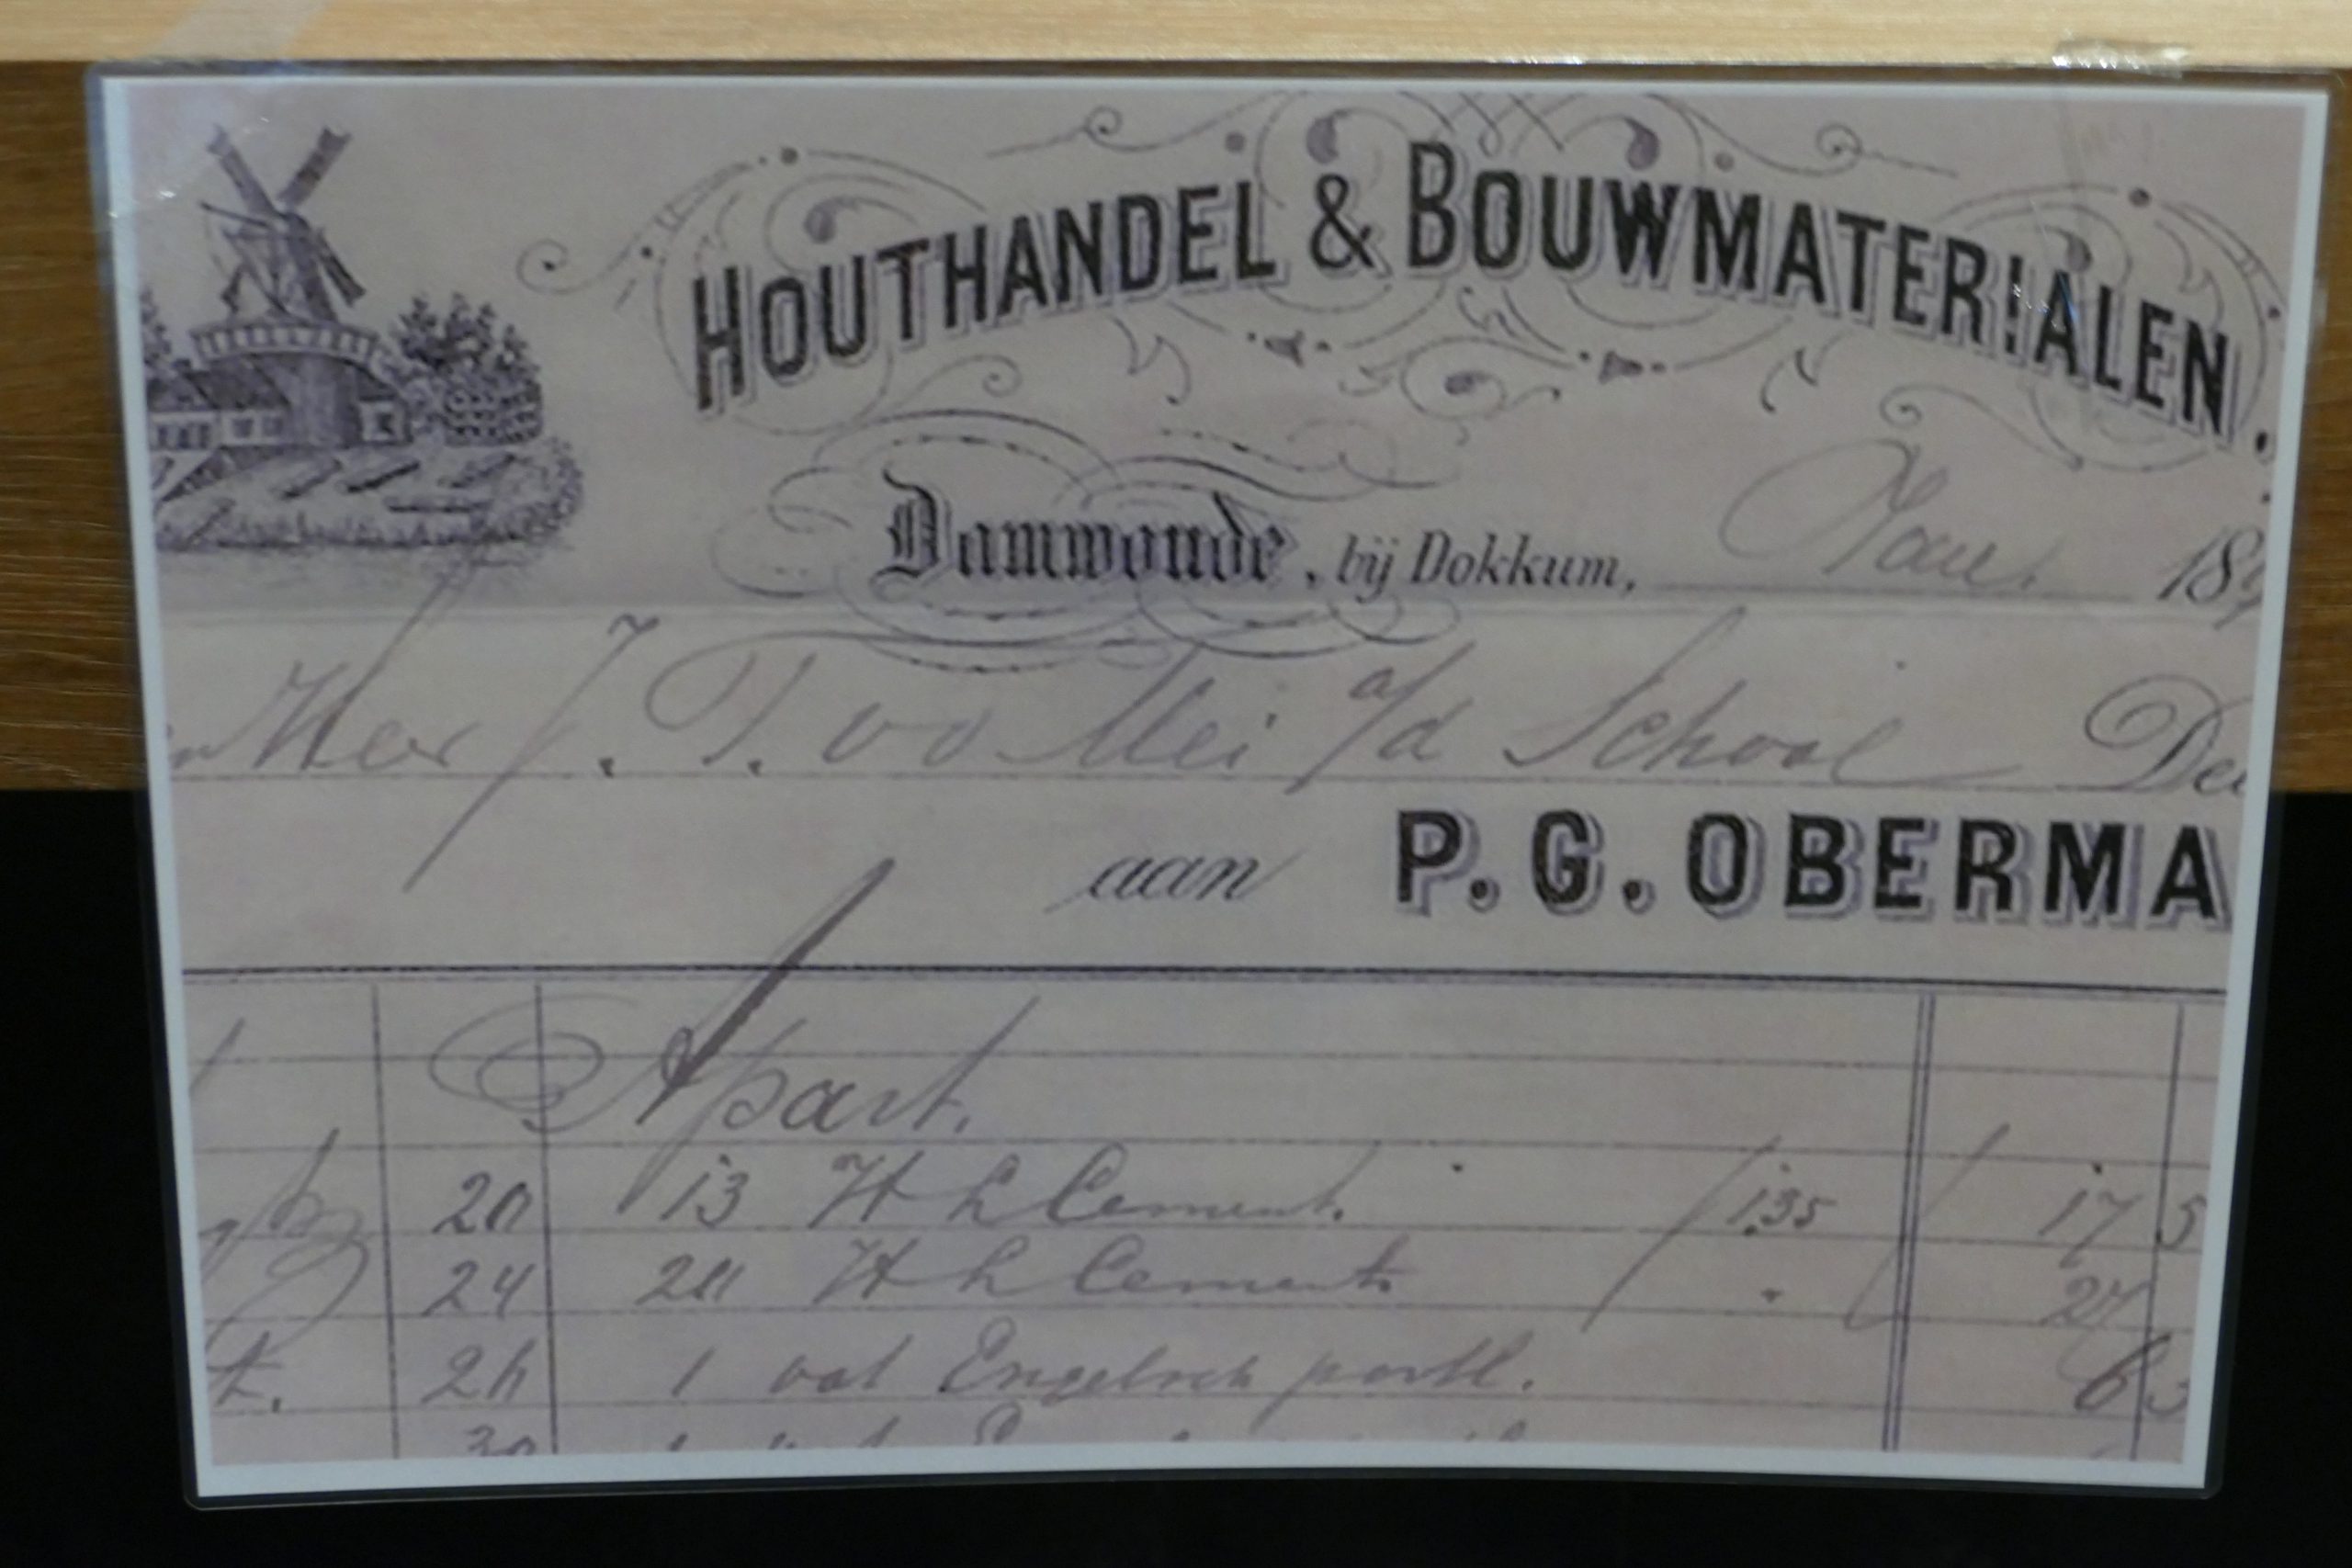 HOUTHANDEL & BOUWMATERIALEN.
Damwoude, bij Dokkum, Jan. 189
Heer J. T. v d Mei a/d School De
aan P. G. OBERMA
Apart.
20 13 H L Cement. 1.35 17 5
24 20 H L Cement. 27
26 1 vat Engelsch portl. 6 3
30